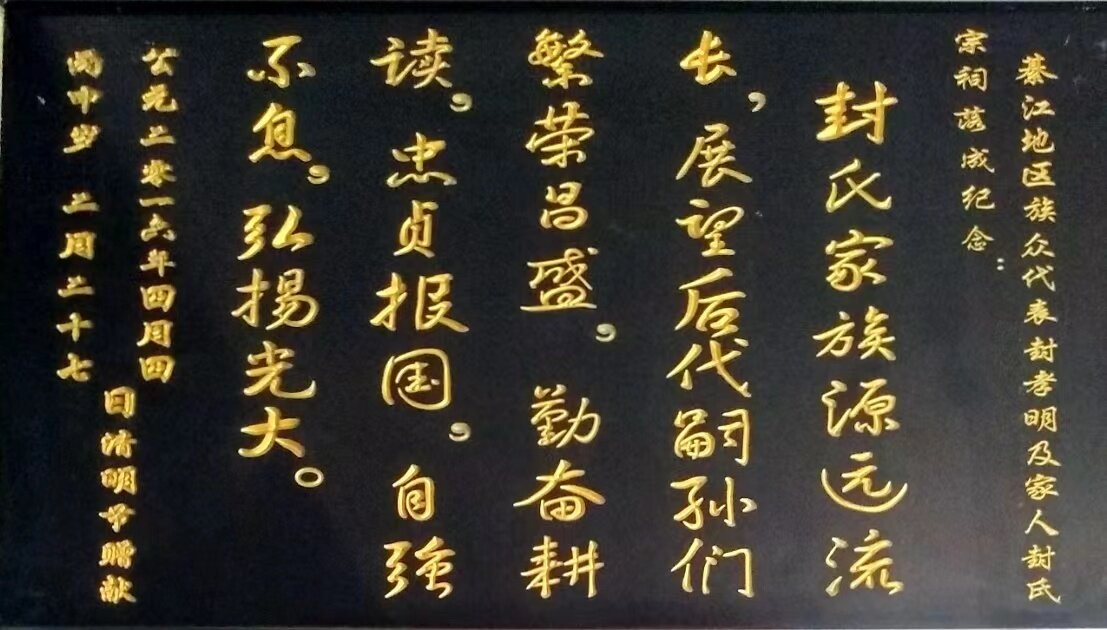 綦江地区族众代表封孝明及家人封氏
宗祠落成纪念：
封氏家族源远流
长，展望后代嗣孙们
繁荣昌盛，勤奋耕
读，忠贞报国，自强
不息，弘揚光大。
公元二零一六年四月四
丙申岁 二月二十七
日清明节赠献